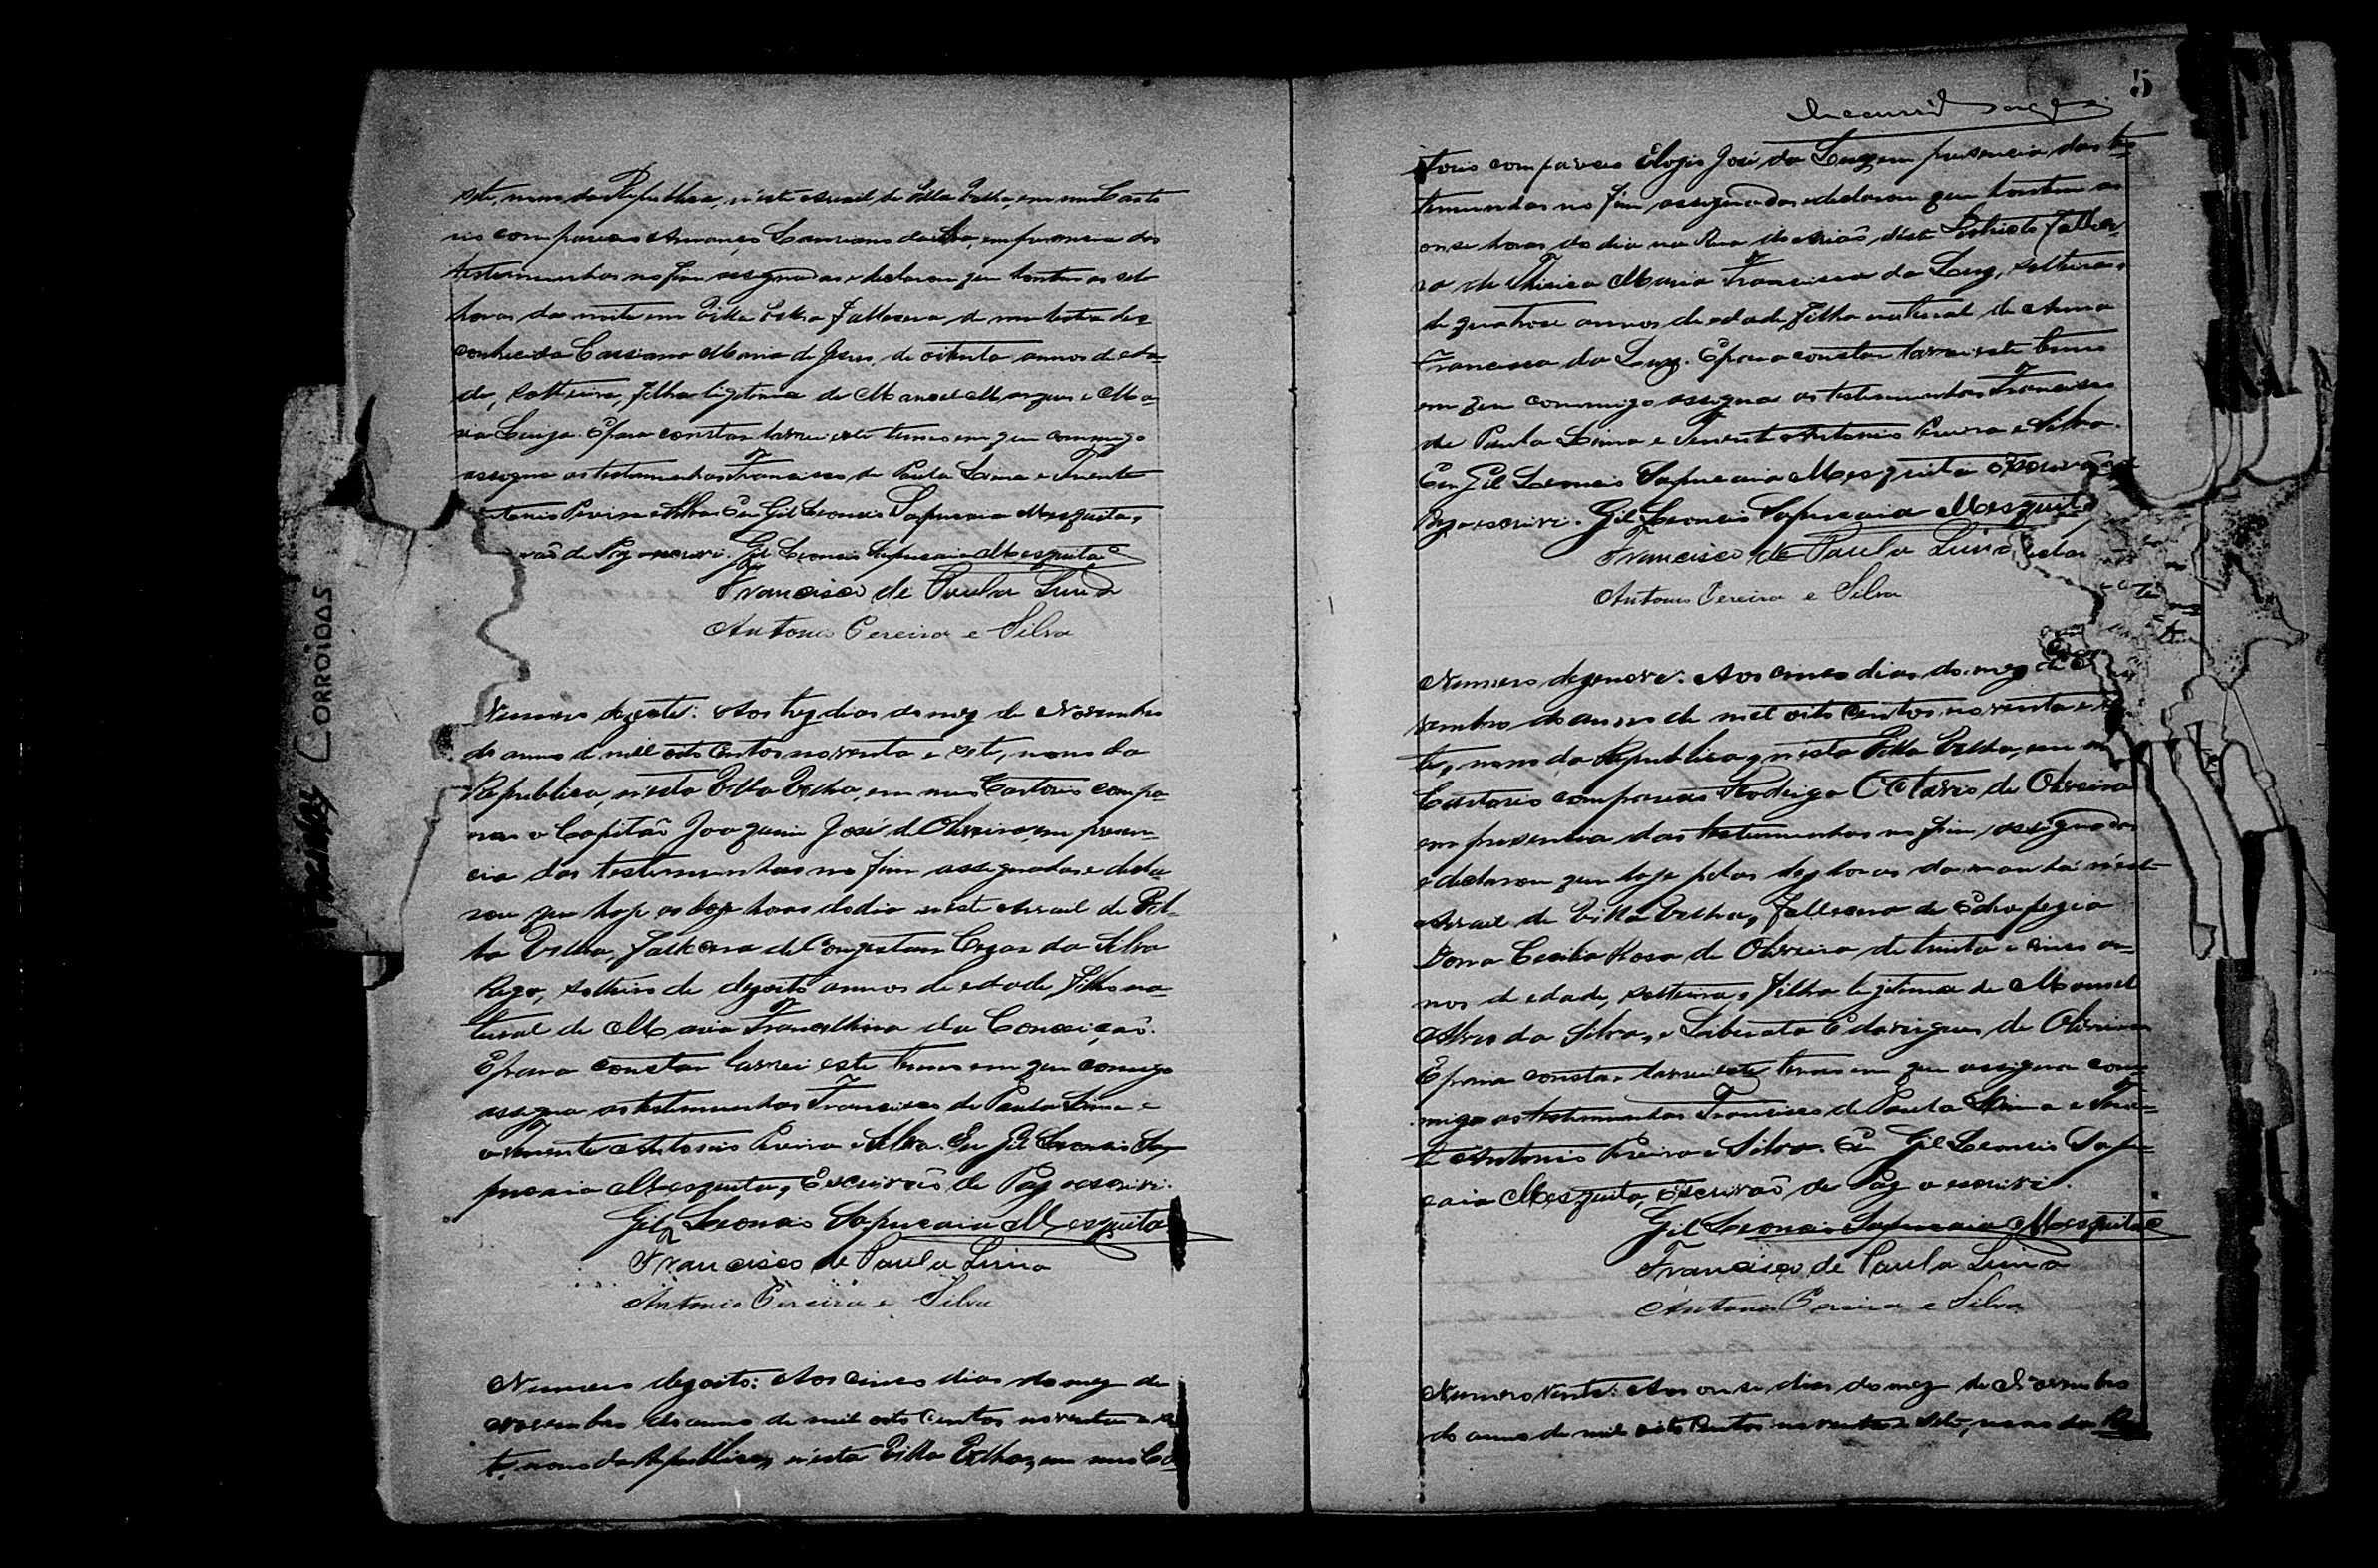 sete, nono da Republica, n'este Arraial de Villa Velha, em meu Carto
rio compareceu Januario da em presencia das
testemunhas no fim assignadas e declarou que hontem as sete
horas da noite em Villa Velha falleceu de molestia des-
conhecida Cassiana Maria de Jesus, de oitenta annos de eda-
de, solteira, filha legitima de Manoel Marques e Ma-
ria Luiza. E para constar lavrei este termo em que commigo
assigna as testemunhas Francisco de Paula Lima e Tenente
Antonio Pereira e Silva. Eu Gil Leoncio Sapucaia Mesquita,
vão de Paz o escrevi. Gil Leoncio Sapucaia Mesquita
Francisco de Paula Lima
Antonio Pereira e Silva
Numero dezesete: Aos trez dias do mez de Novembro
do anno de mil oito centos noventa e sete, nono da
Republica, n'esta Villa Velha, em meu Cartorio compa-
receu o Capitão Joaquim José d'Oliveira em presen-
cia das testemunhas no fim assignadas e decla-
rou que hoje as horas do dia n'este Arraial de Vil-
la Velha, falleceu de Congestam Cezar da Silva
Rego, solteiro de dezoito annos de edade, filho na-
tural de Maria Francelina da Conceição.
E para constar lavrei este termo em que comigo
assigna as testemunhas Francisco de Paula Lima e
o Tenente Antonio Pereira e Silva. Eu Gil Leoncio Sa-
pucaia Mesquita, Escrivão de Paz o escrevi.
Gil Leoncio Sapucaia Mesquita
Francisco de Paula Lima
Antonio Pereira e Silva
Numero dezoito: Aos cinco dias do mez de
Novembro do anno de mil oito centos noventa e se
te, nono da Republica, n'esta Villa Velha, em meu Car
CORROIDAS
5
torio compareceu Elogio José da Luz em presencia das tes
temunhas no fim assignadas e declarou que hontem as
onse horas do dia na Rua do deste Districto fallece-
ra de Thisica Maria Francisca da Luz, solteira,
de quatorse annos de edade, filha natural de Anna
Francisca da Luz. E para constar lavrei este termo
em que commigo assigna as testemunhas Francisco
de Paula Lima e Tenente Antonio Pereira e Silva.
Eu Gil Leoncio Sapucaia Mesquita Escrivão de
Paz o escrivi. Gil Leoncio Sapucaia Mesquita
Francisco de Paula Lima
Antonio Pereira e Silva
Numero dezenove: Aos cinco dias do mez de
vembro do anno de mil oito centos noventa e se
te, nono da Republica, n'esta Villa Velha, em m
Cartorio compareceu Rodrigo Octavio de Oliveira
em presencia das testemunhas no fim assignadas
e declarou que hoje pelas dez horas da manhã n'este
Arraial de Villa Velha, falleceu de Hidropezia
Dona Cecilia Rosa de Oliveira de trinta e cinco an-
nos de edade, solteira, filha legitima de Manoel
Alves da Silva, e Liberata de Oliveira
E para constar lavrei este termo em que assigna com-
migo as testemunhas Francisco de Paula Lima e Tenen-
te Antonio Pereira e Silva. Eu Gil Leoncio Sapu-
caia Mesquita, Escrivão de Paz o escrivi.
Gil Leoncio Sapucaia Mesquita
Francisco de Paula Lima
Antonio Pereira e Silva
Numero vinte: Aos onse dias do mez de Novembro
do anno de mil oito centos noventa e sete, nono da Re